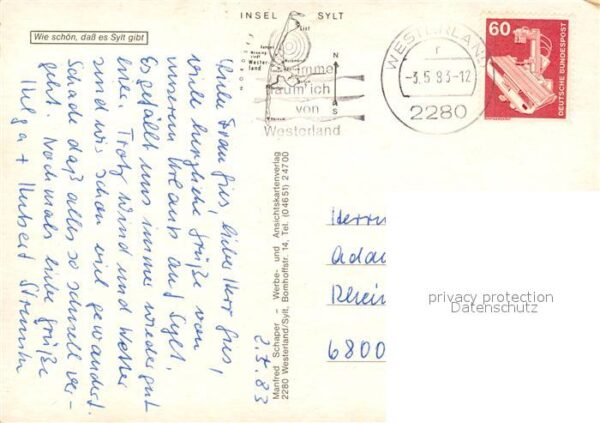 INSEL SYLT
Wie schön, daß es Sylt gibt
Westerland
Immer
träum ich
von
Westerland
WESTERLAND
r
-3.5.83-12
2280
60
DEUTSCHE BUNDESPOST
Liebe Frau Gries, lieber Herr Gries,
viele herzliche Grüße von
unserem Urlaub auf Sylt.
Es gefällt uns immer wieder gut
hier. Trotz Wind und Wetter
sind wir schon viel gewandert.
Schade daß alles so schnell ver-
geht. Nochmals liebe Grüße
Helga + Hubert
2.5.83
Manfred Schaper – Werbe- und Ansichtskartenverlag
2280 Westerland/Sylt, Bomhoffstr. 14, Tel. (04651) 24700
Herrn
Adam
Rhein
6800
privacy protection
Datenschutz